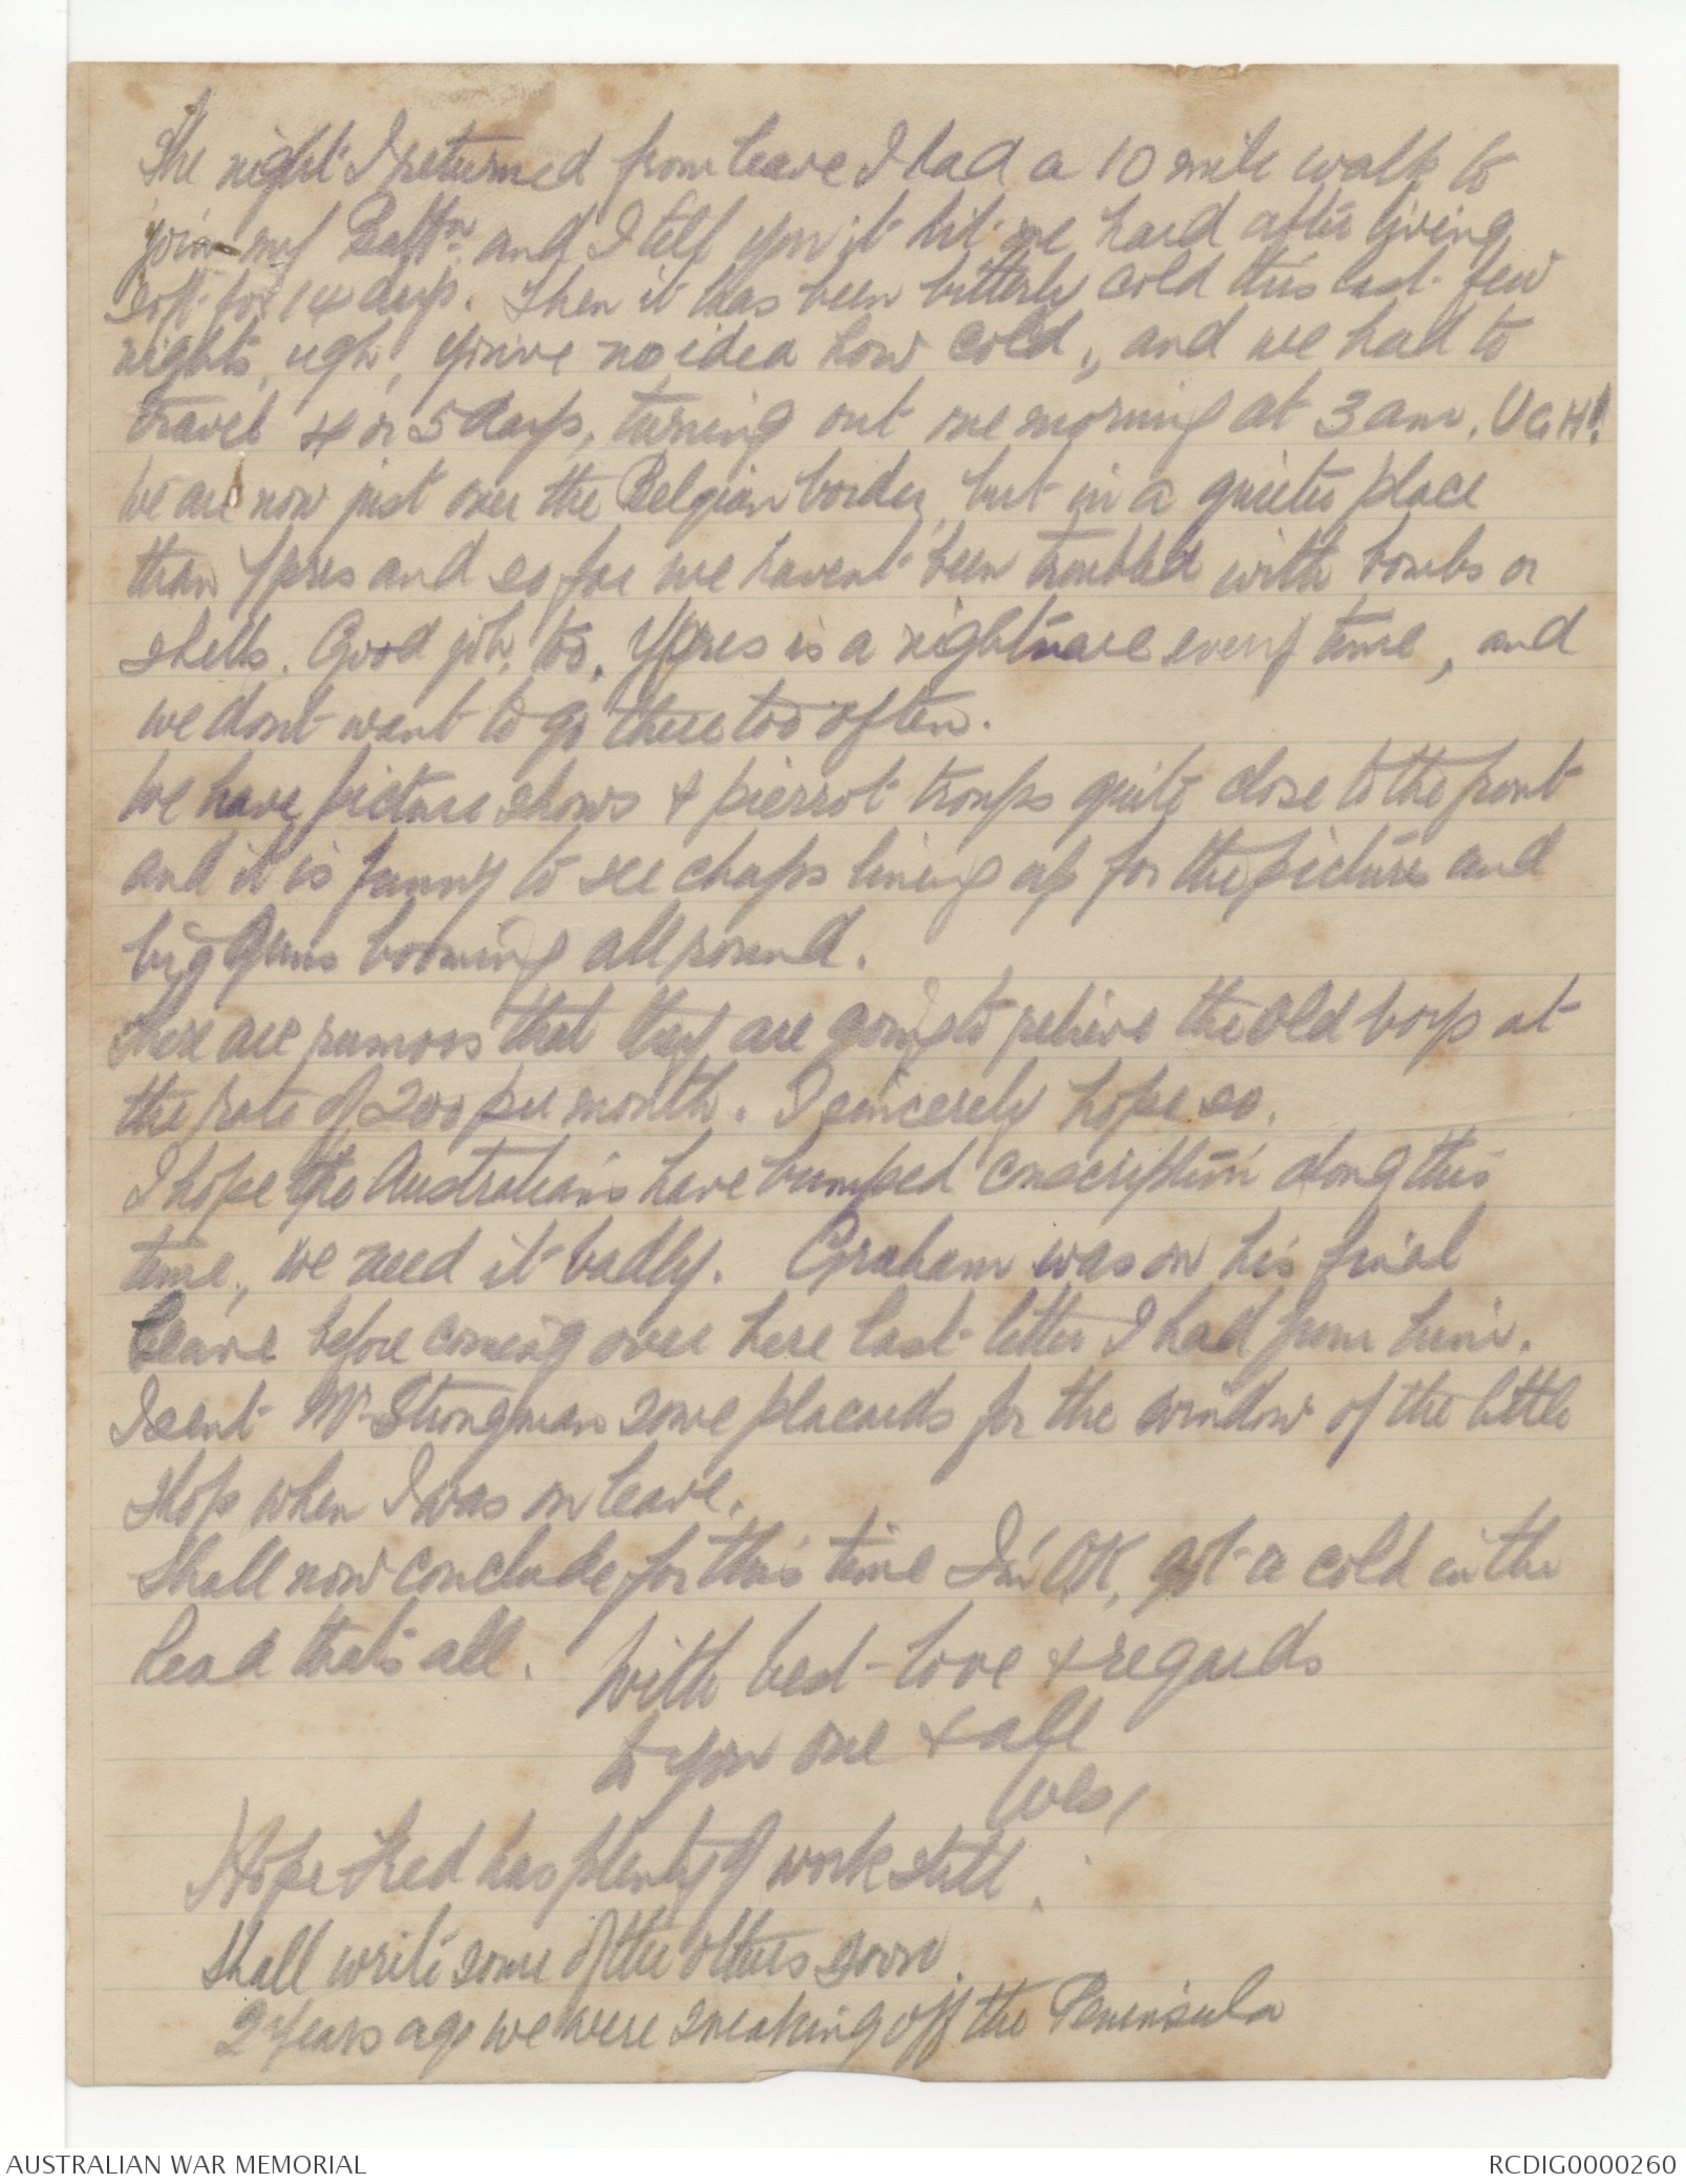 The night I returned from leave I had a 10 mile walk to
join my Battn. and I tell you it hit me hard after living
soft for 14 days. Then it has been bitterly cold this last few
nights, ugh, you've no idea how cold, and we had to
travel 4 or 5 days, turning out one morning at 3 am. UGH!
We are now just over the Belgian border, but in a quieter place
than Ypres and so far we havent been troubled with bombs or
shells. Good job, too. Ypres is a nightmare every time, and
we dont want to go there too often.
We have picture shows & pierrot troups quite close to the front
and it is funny to see chaps lining up for the pictures and
big guns booming all round.
There are rumors that they are going to relieve the old boys at
the rate of 200 per month. I sincerely hope so.
I hope the Australians have bumped conscription along this
time, we need it badly. Graham was on his final
leave before coming over here last letter I had from him.
I sent Mr Strongman some placards for the window of the little
shop when I was on leave.
Shall now conclude for this time I'm OK, got a cold in the
head that's all. With best love & regards
to you one & all
Wes,
Hope Fred has plenty of work still.
Shall write some of the others soon.
2 years ago we were sneaking off the Peninsula
AUSTRALIAN WAR MEMORIAL
RCDIG0000260